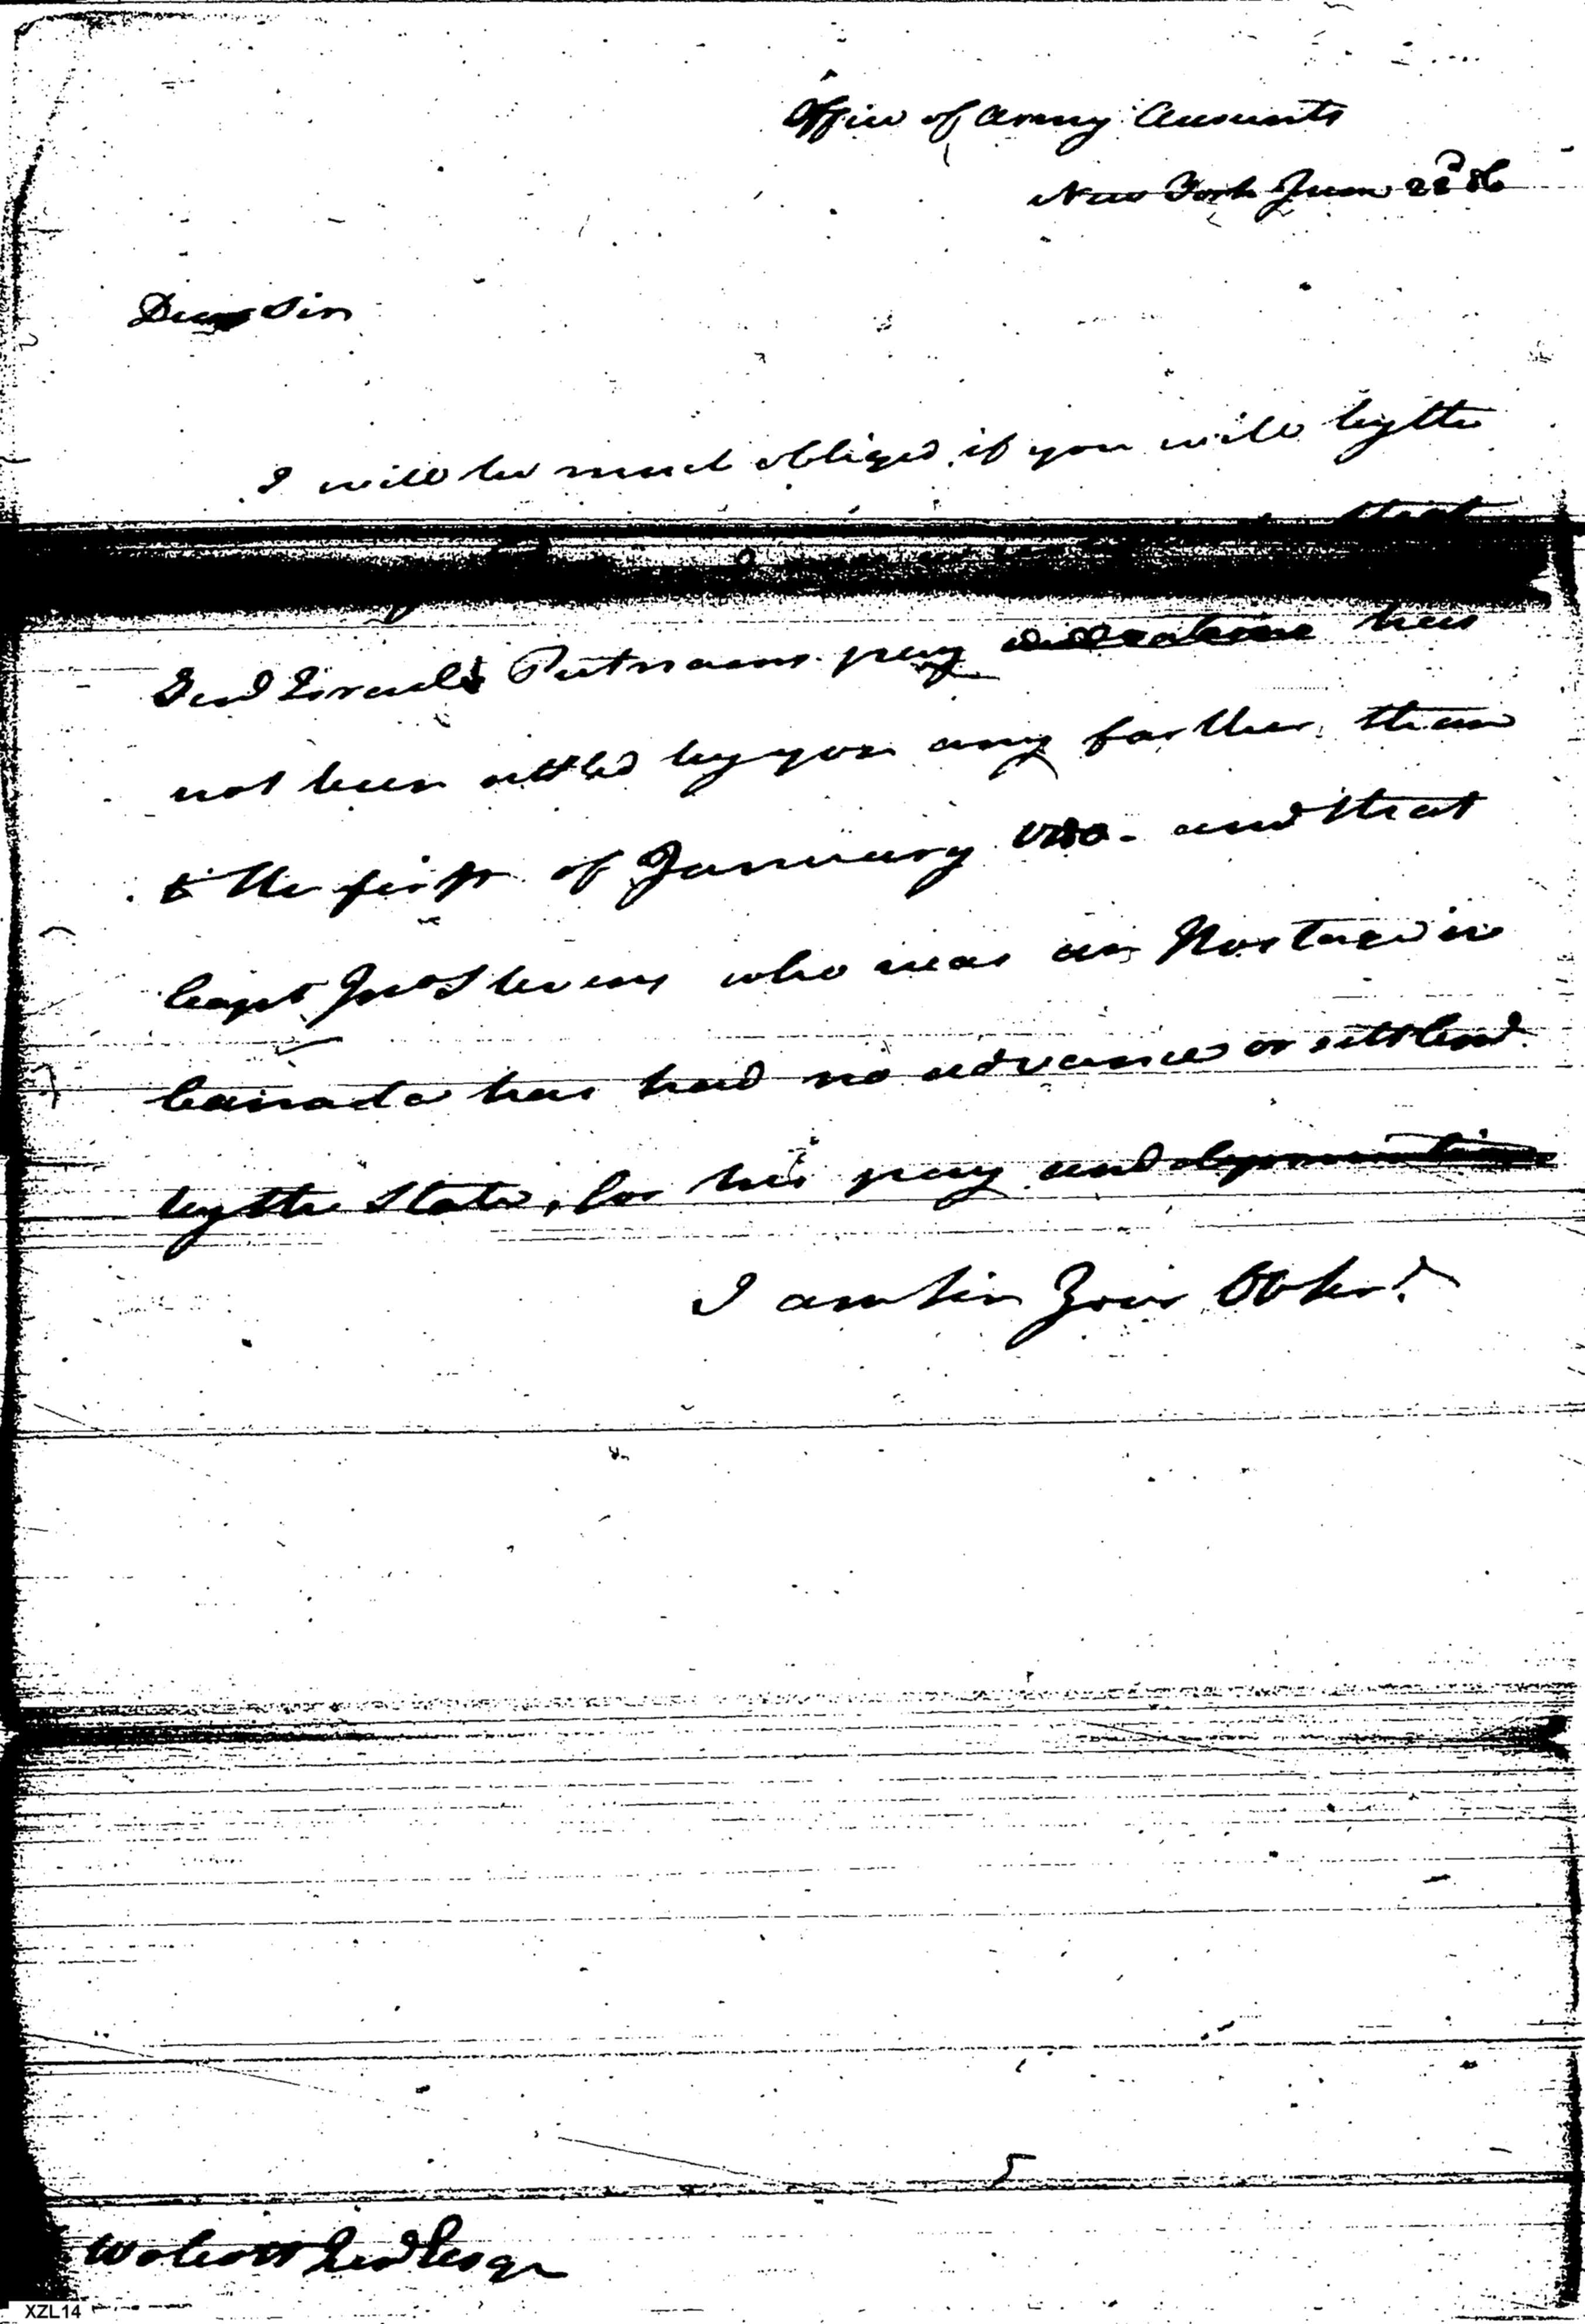 Office of Army Accounts
New York June 22d 86
Dear Sir
I will be much obliged if you will by the
that
Genl Israel Putnams pay has
not been settled by you any farther than
to the first of January 1780 - and that
Capt Jno Stevens who was an Hostage in
Canada has had no advance or settlemt
by the State, for his pay and depreciation
I am Sir Your Obt Servt
Wolcott Jun Esqr
XZL14